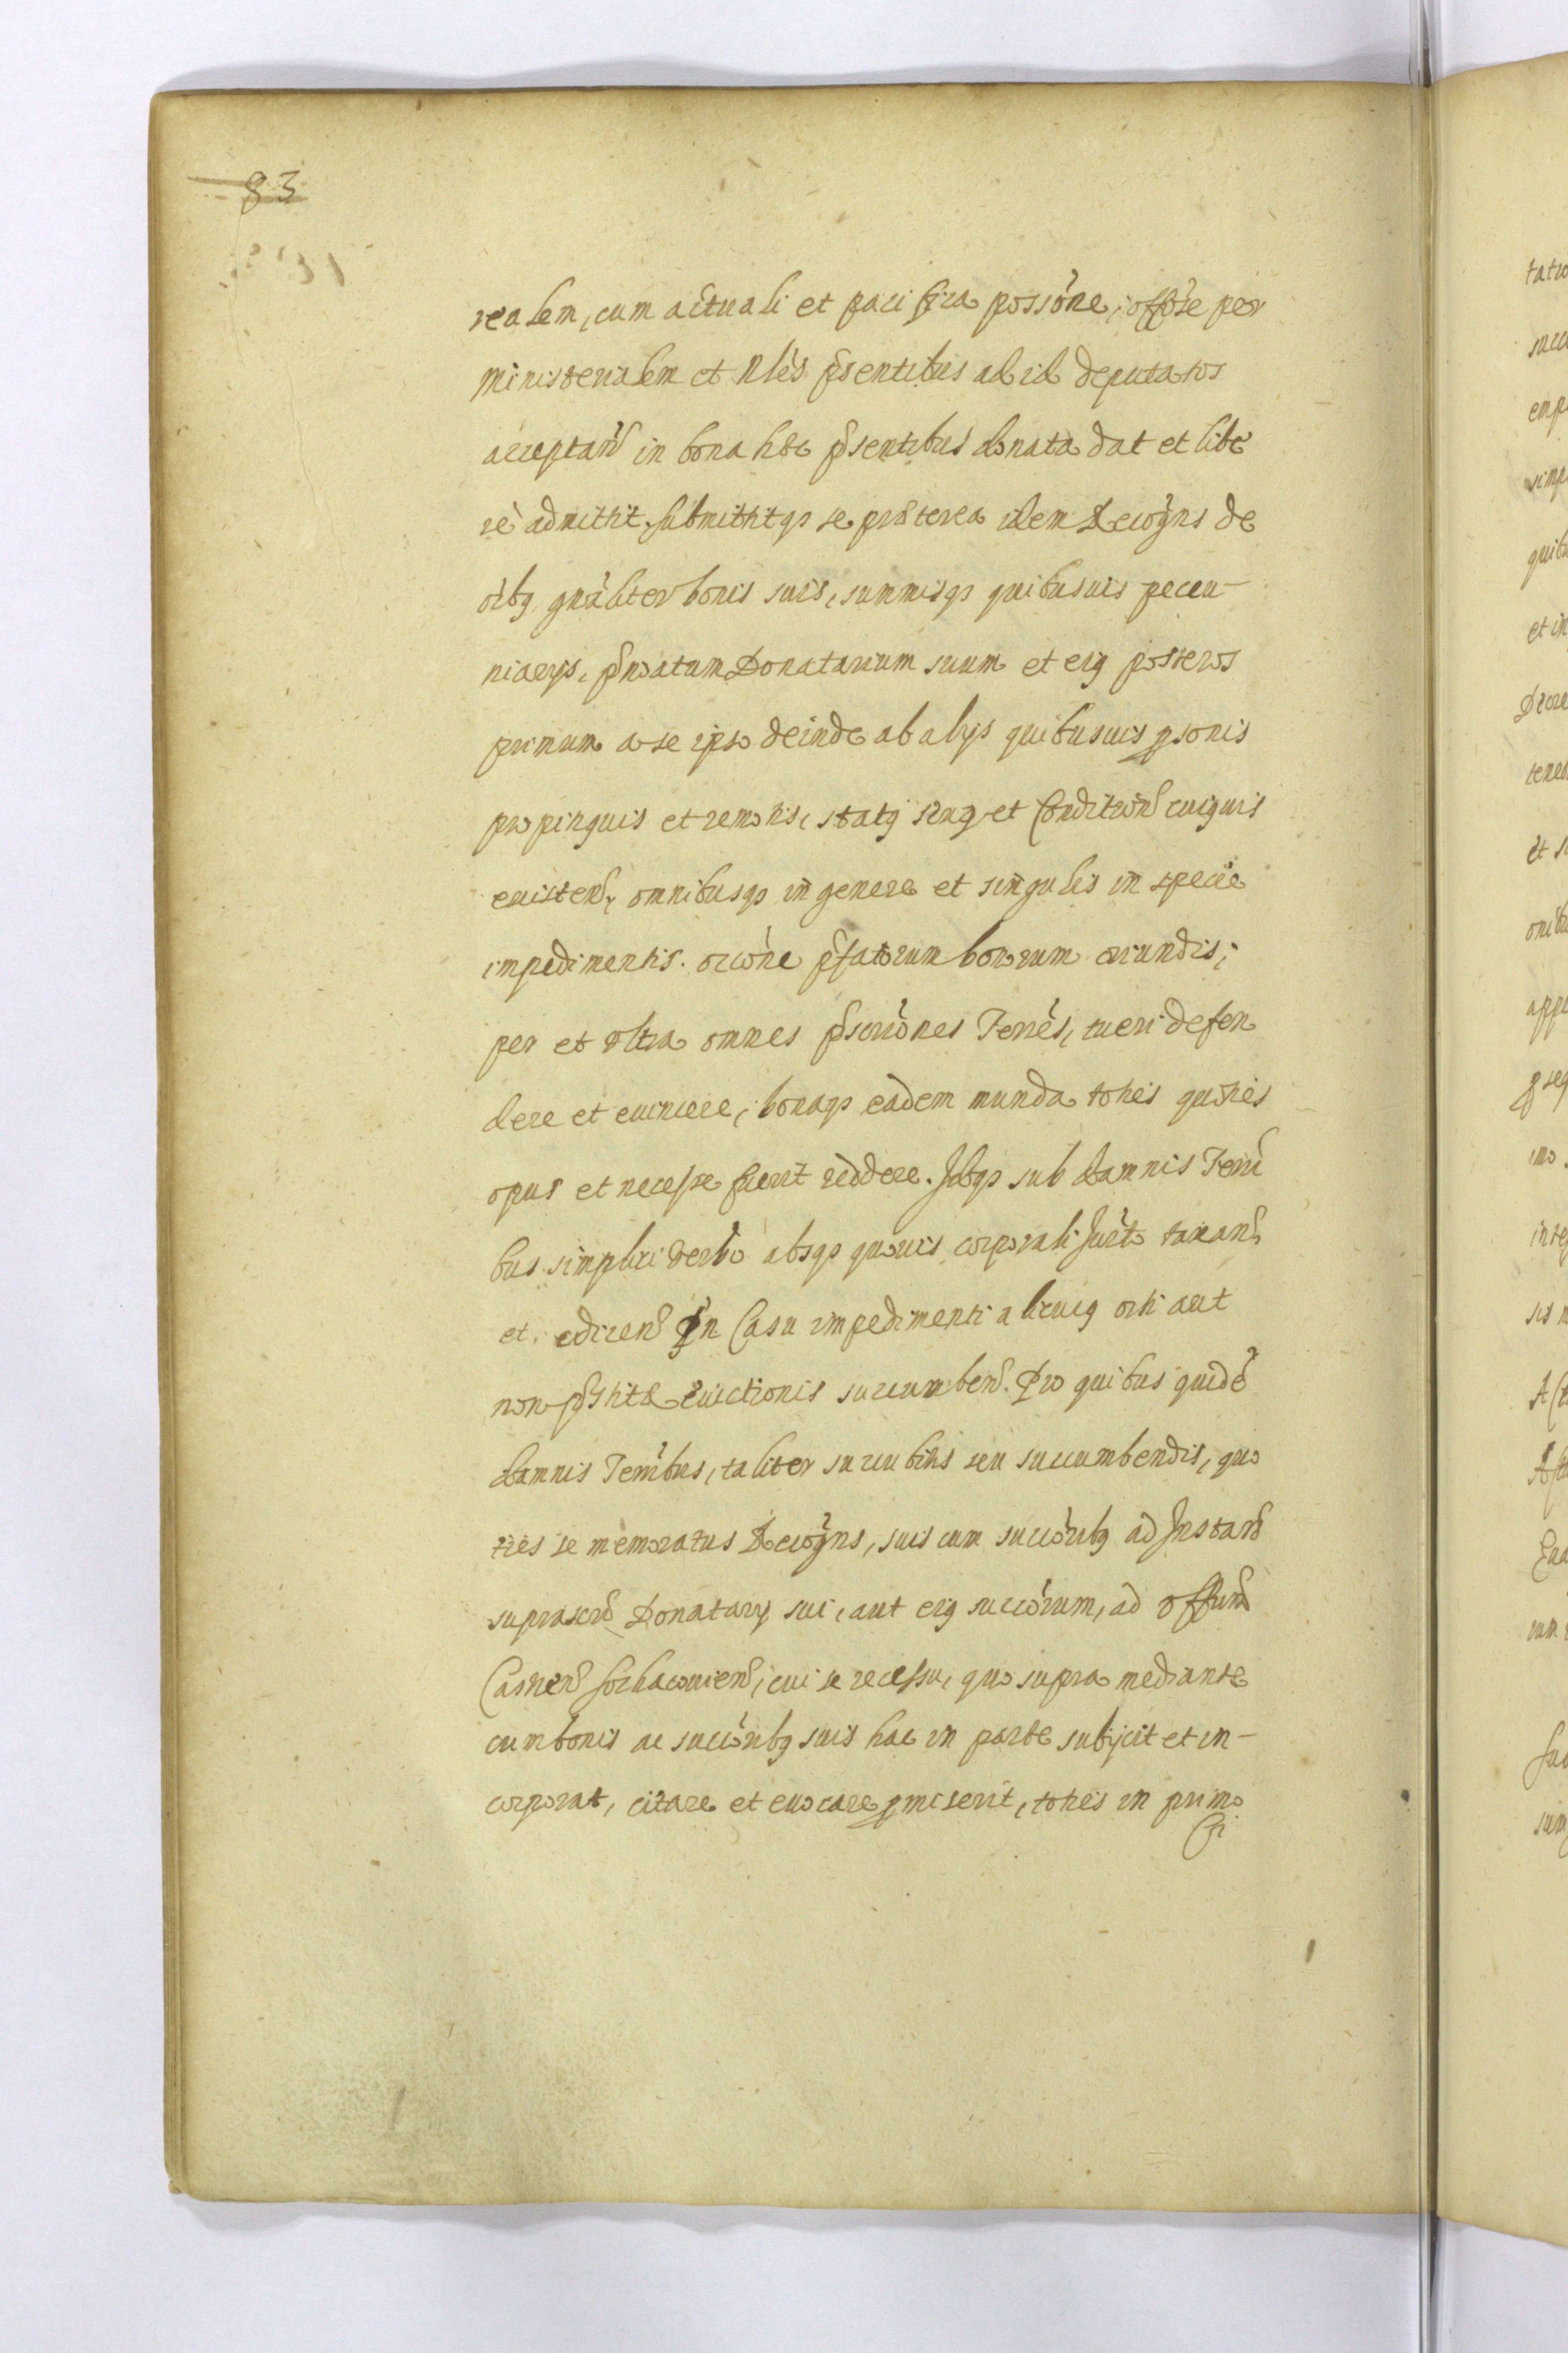 83
realem, cum actuali et pacifica possōne, offōse per
Ministerialem et Nlēs p̄sentibus ad id deputatos
acceptan̄ in bona hæc p̄sentibus donata dat et libe
rè admittit. Submittitqz se præterea idem Recōgns de
oībq gnāliter bonis suis, summisqz quibusuis pecu-
niarys, p̄noatum Donatarium suum et eiq posteros
primum a se ipso deinde ab alys quibusuis psonis
propinquis et remotis, statq sexq et Conditiōn cuiquis
existen̄, omnibusqz in genere et singulis in specie
impedimentis. occōne p̄fatorum bonorum oriundis,
per et ultra omnes p̄scriōnes Terrēs, tueri defen
dere et euincere, bonaqz eadem munda toties quoties
opus et necesse fuerit reddere. Idqz sub damnis Terrī
bus simplici verbo absqz quouis corporali Jurto taxan̄
et edicen̄ In Casu impedimenti alicuiq orti aut
non p̄stitæ Euictionis succumben̄. Pro quibus quidē
damnis Terrībus, taliter succubitis seu succumbendis, quo
ties se memoratus Recōgns, suis cum succōribq ad Instan̄
suprascr̄ Donatary sui, aut eiq succōrum, ad offum̄
Castren̄ Sochaczouien̄, cui se recessu, quo supra mediante
cum bonis ac succōribq suis hac in parte subijcit et in-
corporat, citare et euocare pmiserit, toties in primo